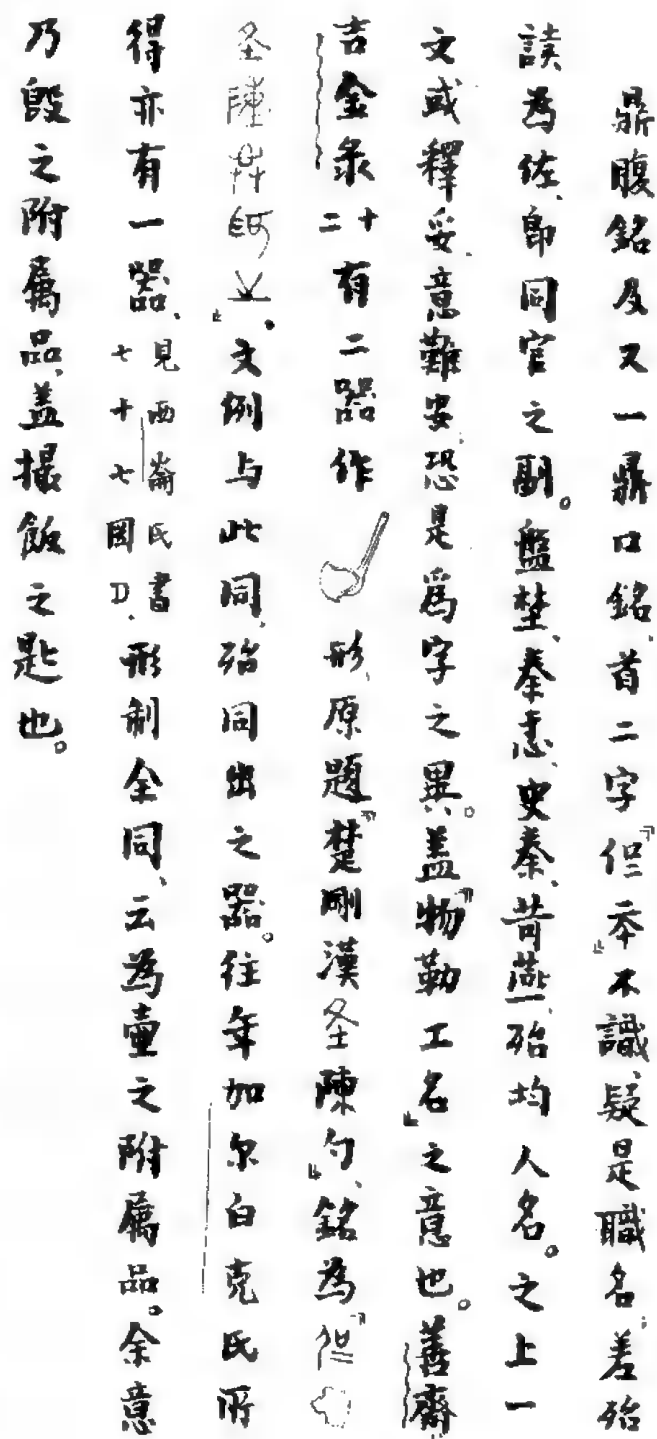 鼎腹銘及又一鼎口銘、首二字『但夲』不識、疑是職名、差殆
讀為佐、即同官之副。盤埜、秦忎、史秦、苛燕、殆均人名。之上一
文或釋妥、意難安、恐是爲字之異。盖『物勒工名』之意也。善齋
吉金彔十二有二器作形、原題『楚剛漢圣陳勺』、銘為『但
圣陳共』。文例与此同、殆同出之器。往年加尔白克氏所
得亦有一器、見西崙氏書七十七圖D、形制全同、云為壷之附屬品。余意
乃毁之附屬品、盖撮飯之匙也。